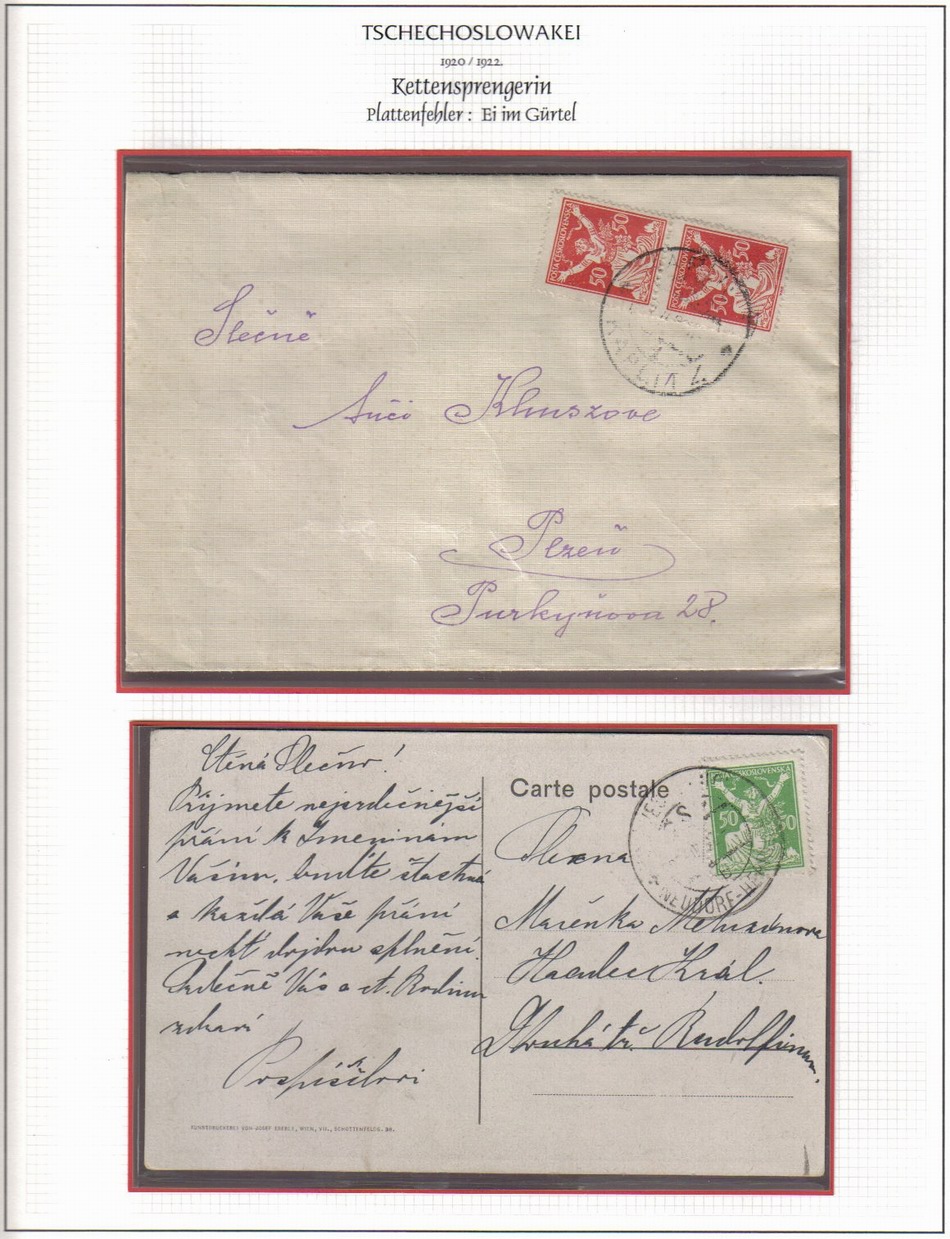 TSCHECHOSLOWAKEI
1920 / 1922.
Kettensprengerin
Plattenfehler : Ei im Gürtel
POŠTA ČESKOSLOVENSKÁ
50
50
POŠTA ČESKOSLOVENSKÁ
50
50
KAPLIA
Slečně
Anči
Plzeň
Purkyňova 28.
Ctěná Slečno!
Přijmete nejsrdečnější
přání k Jmeninám
Vašim, buďte šťastná
a každá Vaše přání
nechť dojdou splnění.
Srdečně Vás a ct. Rodinu
zdraví
Pospíšilovi
Carte postale
POŠTA ČESKOSLOVENSKÁ
50
50
NEUDORF
Slečna
Mařenka
Hradec Král.
Dlouhá tř. Rudolfinum.
KUNSTDRUCKEREI VON JOSEF EBERLE, WIEN, VII., SCHOTTENFELDG. 38.